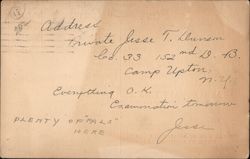 Address
Private Jesse T.
Co. 33 152nd D. B.
Camp Upton.
N-Y.
Everything O.K.
Examination tomorrow
PLENTY OF "PALS"
HERE
Jesse